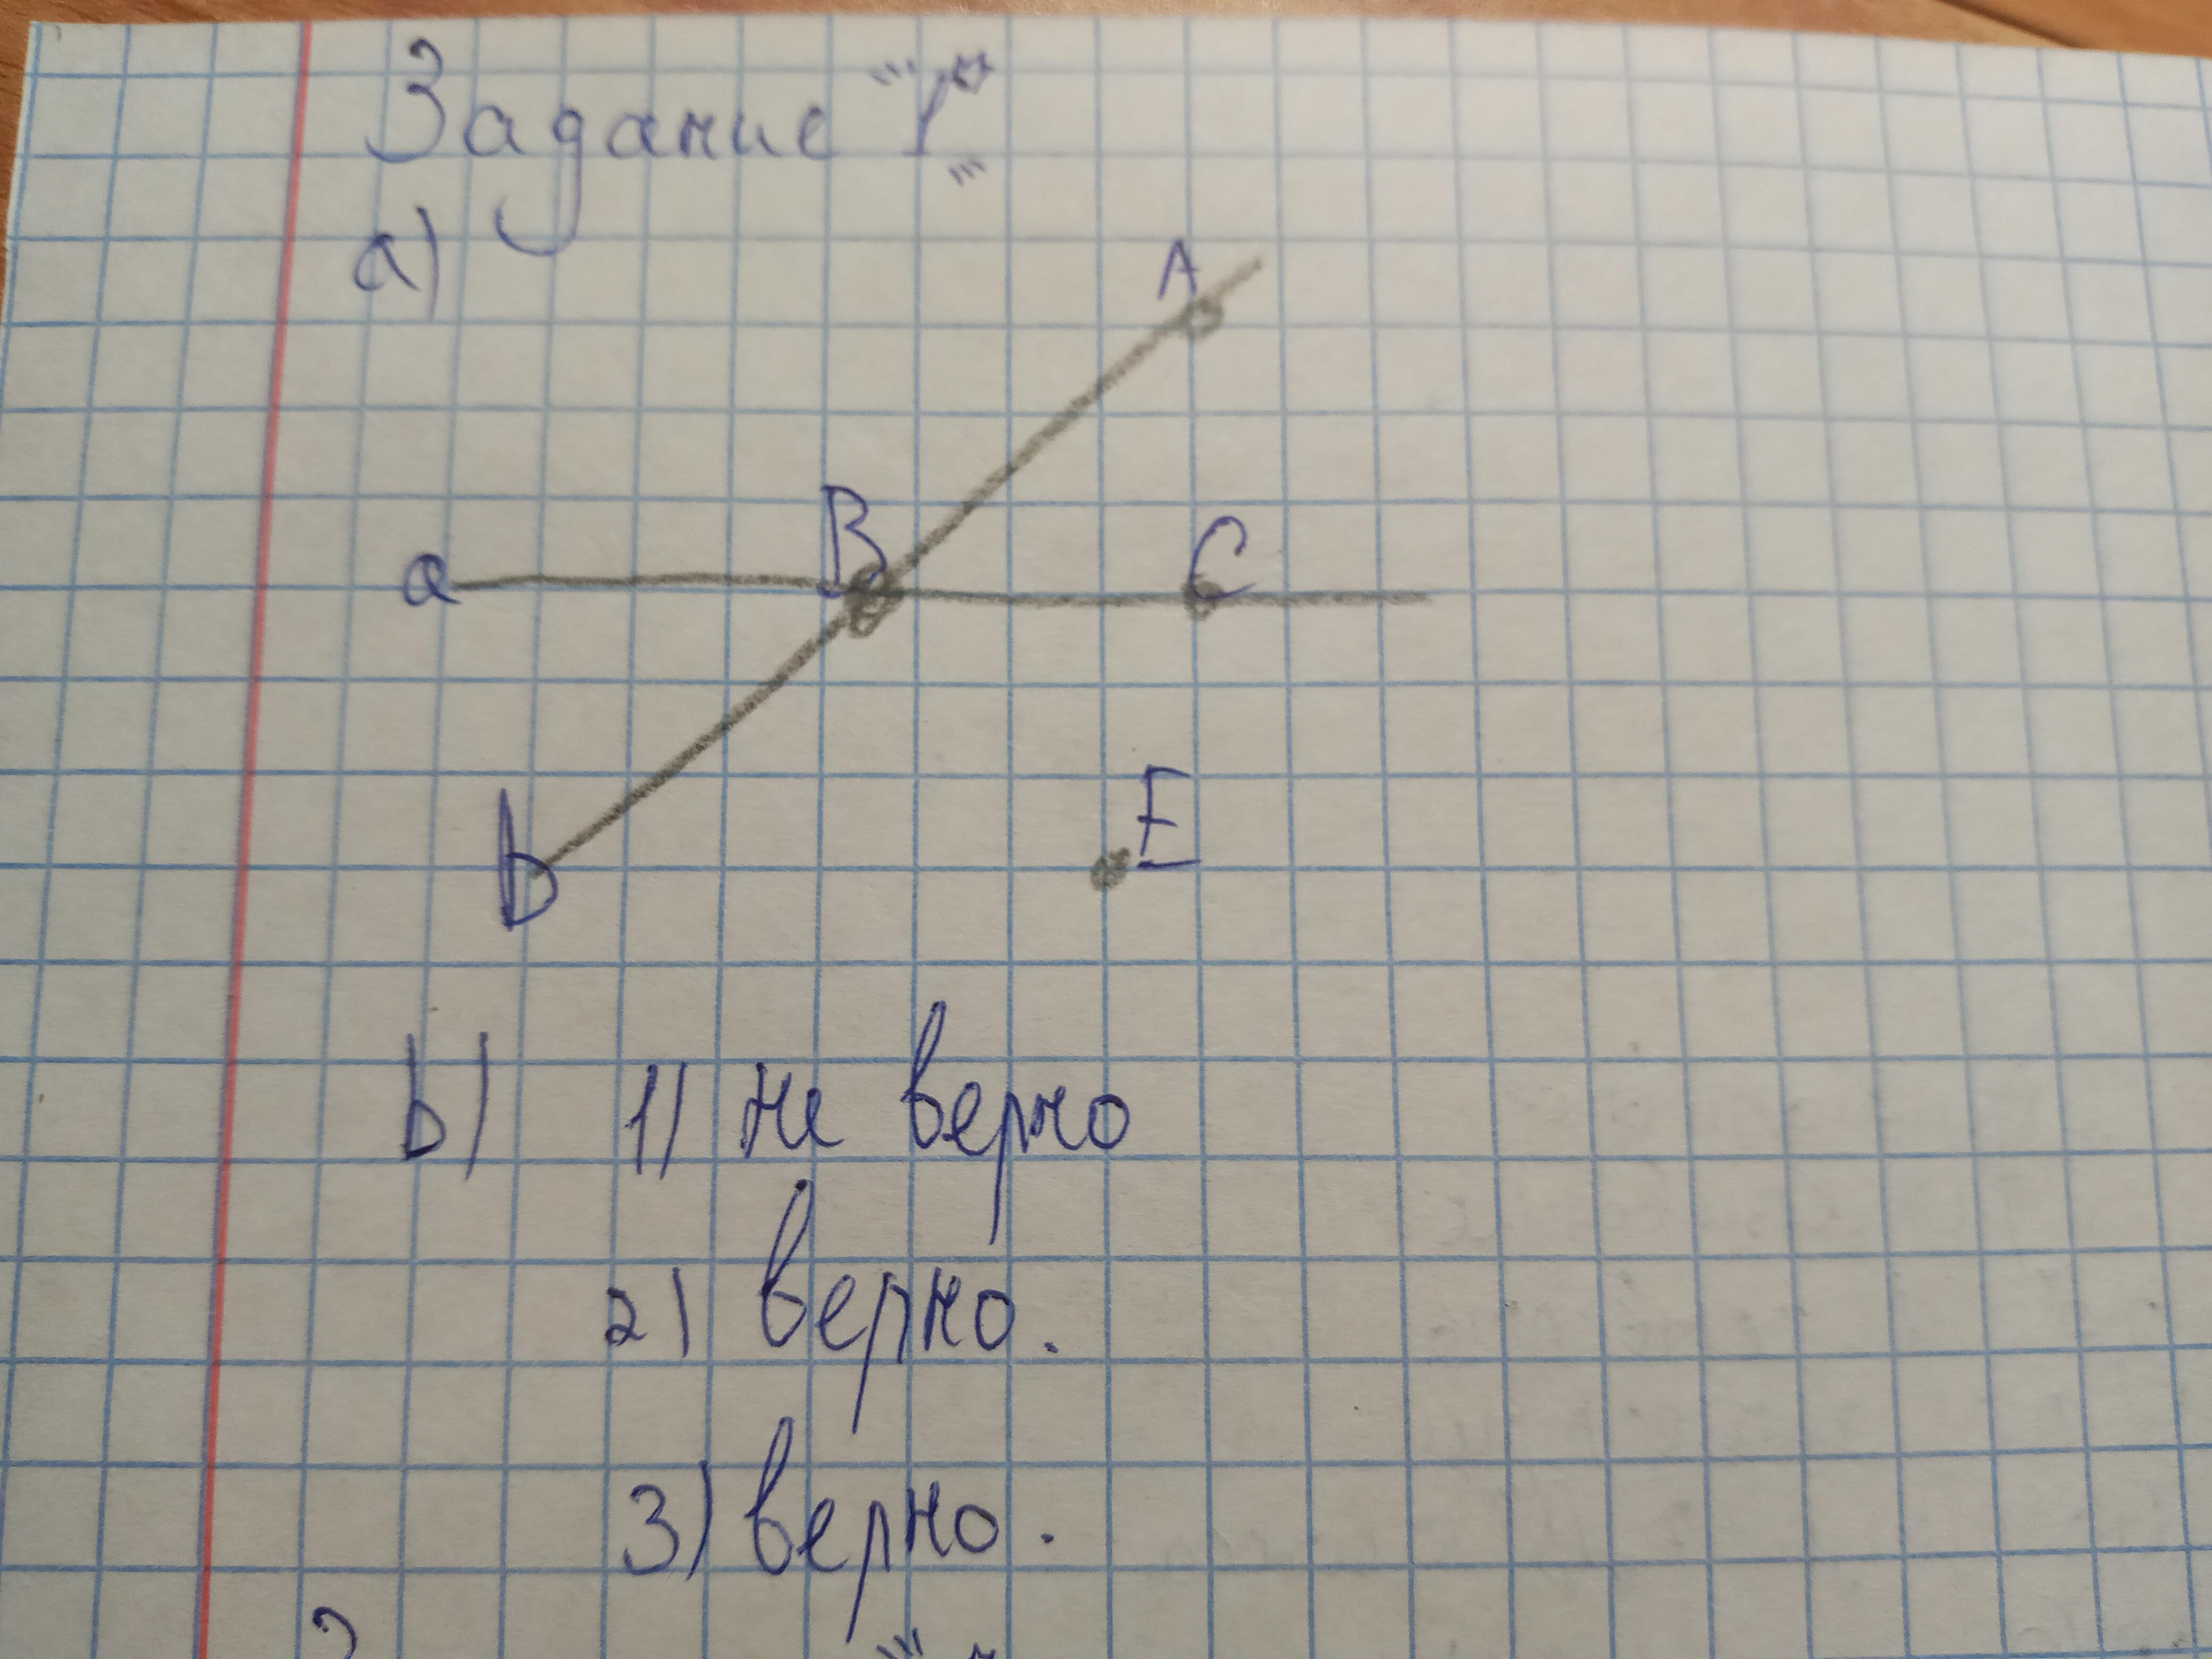 Задание "1"
а)
A
B
C
a
E
b
b) 1) не верно
2) верно.
3) верно.